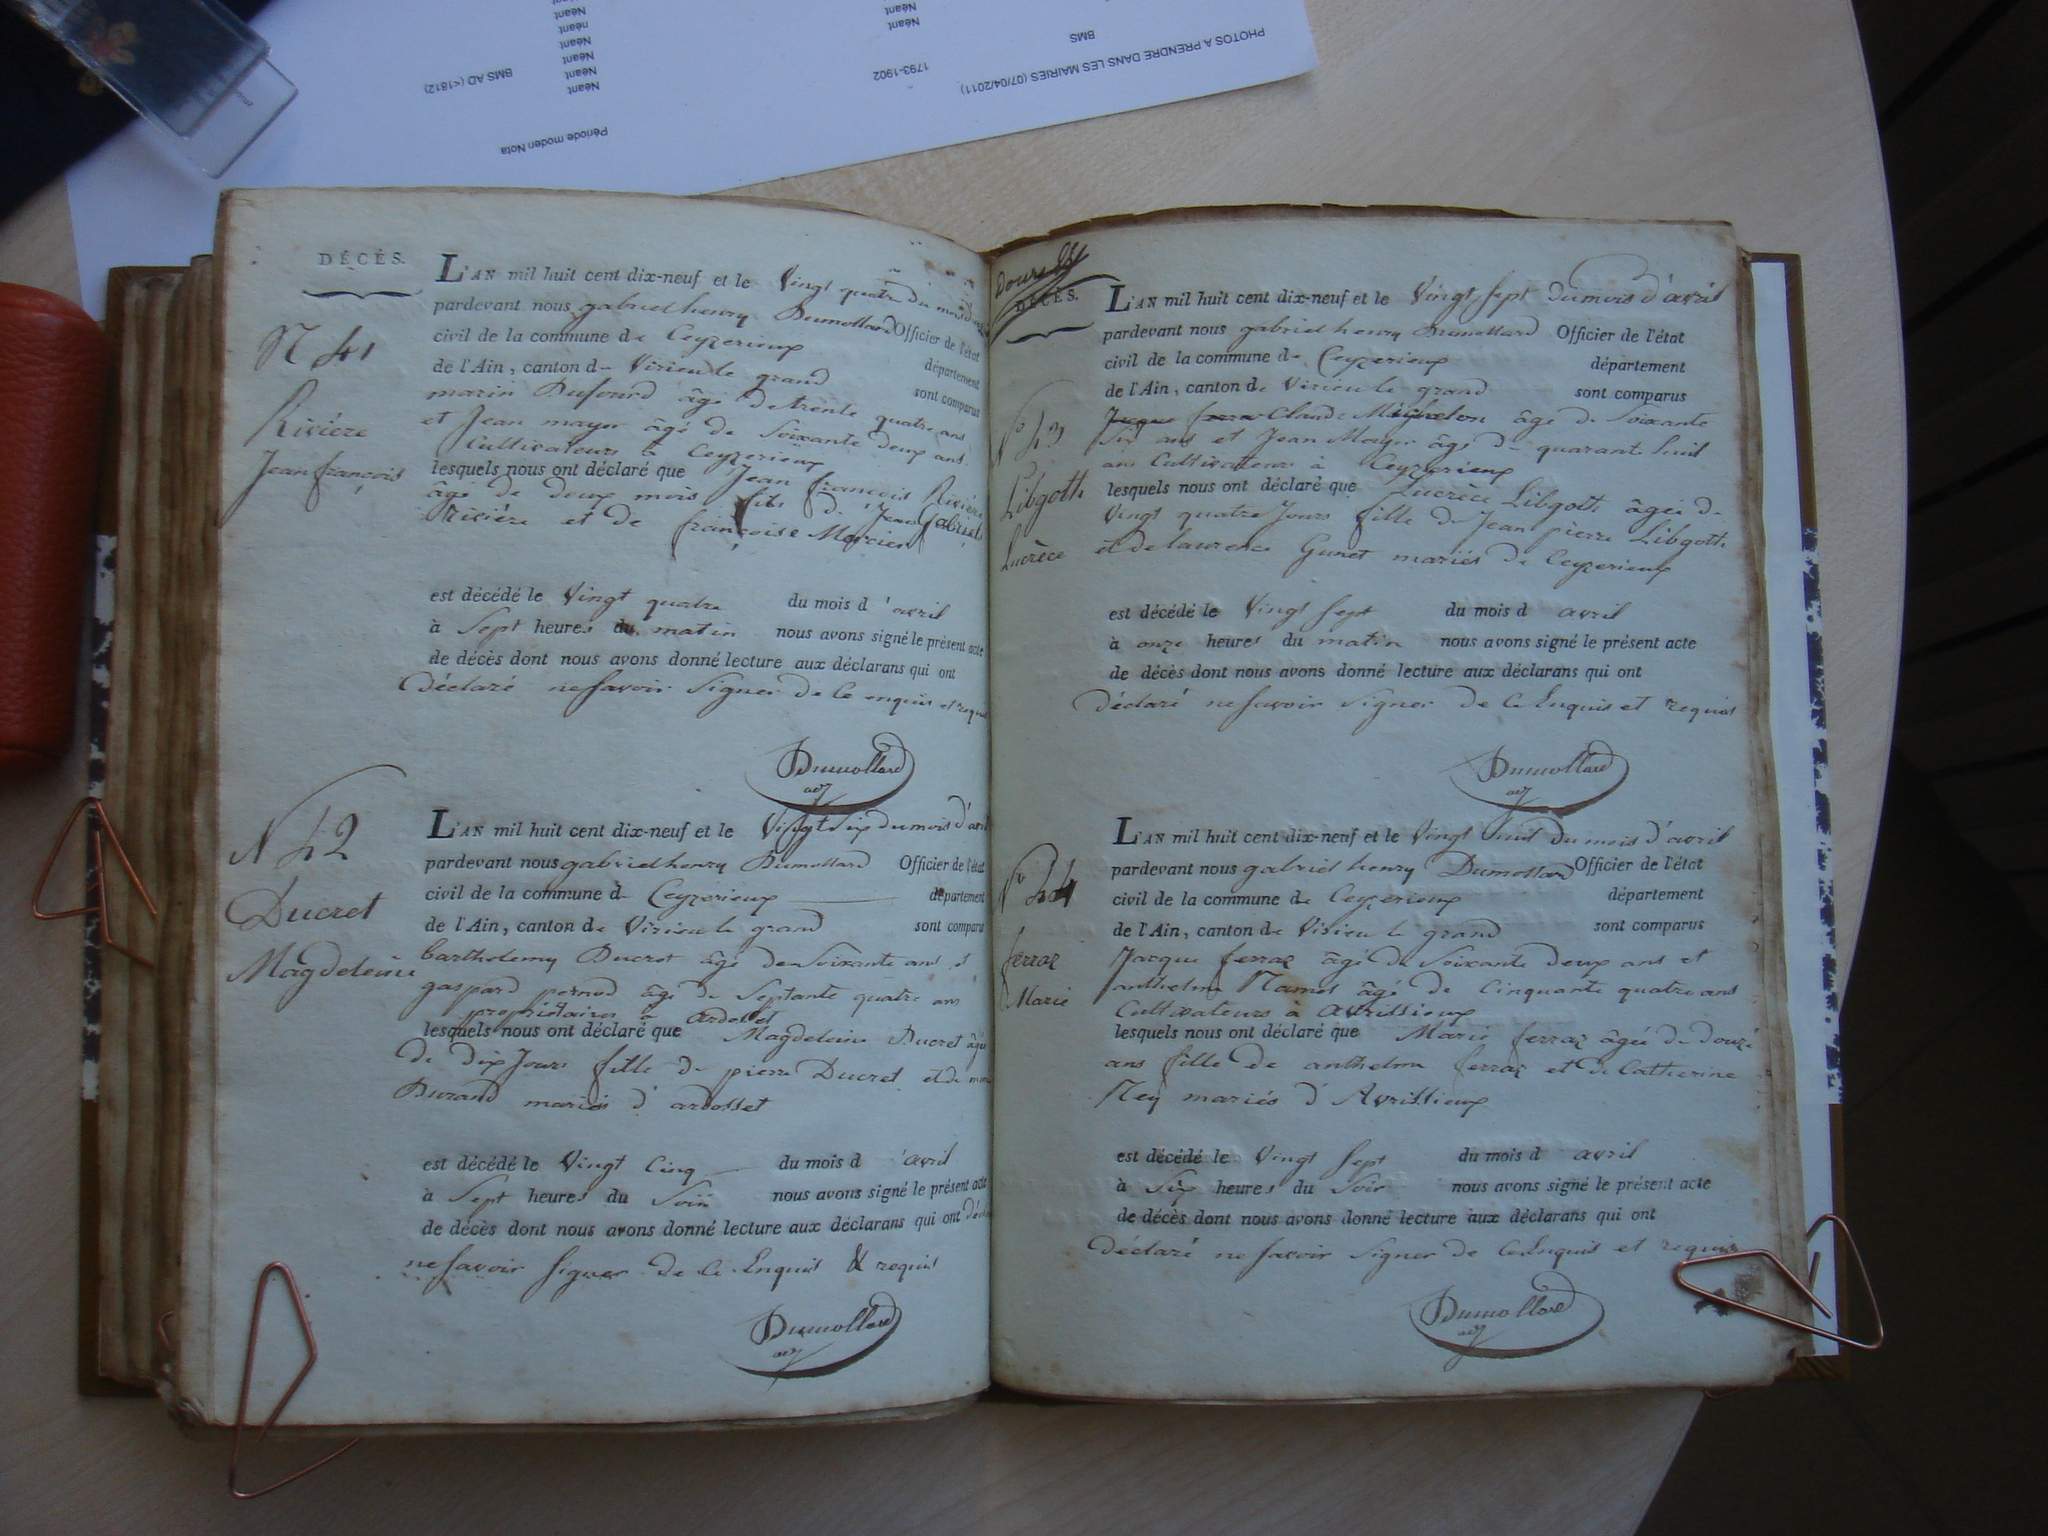 PHOTOS A PRENDRE DANS LES MAIRIES (07/04/2011)
BMS
1793-1902
Néant
Néant
BMS AD (<1812)
Néant
Néant
Néant
néant
Néant
Période moden Nota
DÉCÈS.
N 41
Rivière
Jean françois
L'AN mil huit cent dix-neuf et le Vingt quatre du mois
pardevant nous gabriel henry Dumollard Officier de l'état
civil de la commune de Ceyzerieux département
de l'Ain, canton de Virieu le grand sont comparus
marin Dufourd âgé de trente quatre ans
et Jean mayur âgé de Soixante deux ans
Cultivateurs à Ceyzerieux
lesquels nous ont déclaré que Jean françois Rivière
âgé de deux mois fils de Jean Gabriel
Rivière et de françoise Mercier
est décédé le Vingt quatre du mois d'avril
à Sept heures du matin nous avons signé le présent acte
de décès dont nous avons donné lecture aux déclarans qui ont
Déclaré ne savoir Signer de ce enquis et requis
Dumollard
adj
N 42
Ducret
Magdeleine
L'AN mil huit cent dix-neuf et le Vingt Six du mois d'avril
pardevant nous gabriel henry Dumollard Officier de l'état
civil de la commune de Ceyzerieux département
de l'Ain, canton de Virieu le grand sont comparu
barthelemy Ducret âgé de Soixante ans et
gaspard pernod âgé de Septante quatre ans
propriétaires à ardosset
lesquels nous ont déclaré que Magdeleine Ducret âgée
de dix Jours fille de pierre Ducret et de
Durand mariés d'ardosset
est décédé le Vingt Cinq du mois d'avril
à Sept heures du Soir nous avons signé le présent acte
de décès dont nous avons donné lecture aux déclarans qui ont
ne savoir Signer de Ce Enquis & requis
Dumollard
adj
DÉCÈS.
N° 43
Libgott
Lucrèce
L'AN mil huit cent dix-neuf et le Vingt Sept du mois d'avril
pardevant nous gabriel henry Dumollard Officier de l'état
civil de la commune de Ceyzerieux département
de l'Ain, canton de Virieu le grand sont comparus
Claude Michelon âgé de Soixante
Six ans et Jean Mayur âgé de quarante huit
ans Cultivateurs à Ceyzerieux
lesquels nous ont déclaré que Lucrèce Libgott âgée de
Vingt quatre Jours fille de Jean pierre Libgott
et de laurence Gunet mariés de Ceyzerieux
est décédé le Vingt Sept du mois d avril
à onze heures du matin nous avons signé le présent acte
de décès dont nous avons donné lecture aux déclarans qui ont
Déclaré ne savoir Signer de Ce Enquis et requis
Dumollard
adj
N° 44
ferraz
Marie
L'AN mil huit cent dix-neuf et le Vingt huit du mois d'avril
pardevant nous gabriel henry Dumollard Officier de l'état
civil de la commune de Ceyzerieux département
de l'Ain, canton de Virieu le grand sont comparus
Jacque ferraz âgé de Soixante deux ans et
anthelme Mamet âgé de Cinquante quatre ans
Cultivateurs à avrissieux
lesquels nous ont déclaré que Marie ferraz âgée de douze
ans fille de anthelme ferraz et de Catherine
Ney mariés d'Avrissieux
est décédé le Vingt Sept du mois d avril
à Six heures du Soir nous avons signé le présent acte
de décès dont nous avons donné lecture aux déclarans qui ont
Déclaré ne savoir Signer de Ce Enquis et requis
Dumollard
adj